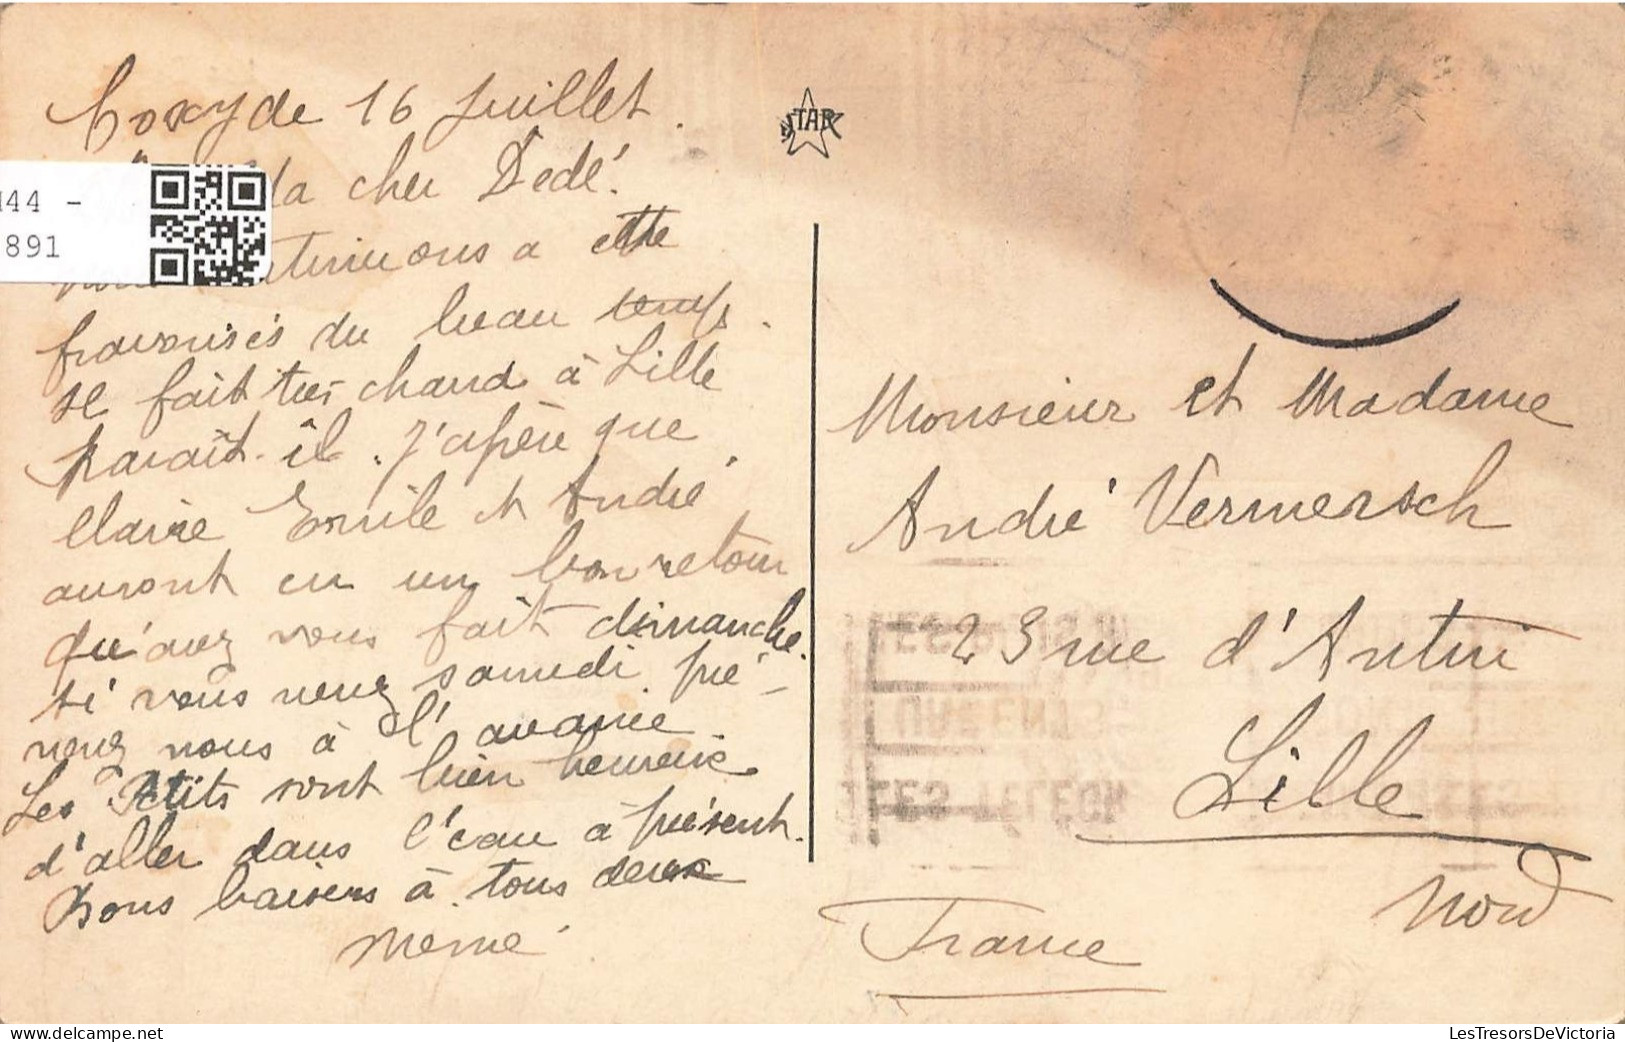 Coxyde 16 Juillet.
da cher Dédé.
a être
favorisés du beau temps.
Il fait très chaud à Lille
paraît-il. J'espère que
Claire Emile et André
auront eu un bon retour
qu'avez vous fait dimanche.
si vous venez samedi pré-
venez nous à l'avance
Les Petits sont bien heureux
d'aller dans l'eau à présent.
Bons baisers à tous deux
Mémé
144 -
891
STAR
Monsieur et Madame
André Vermersch
23 rue d'Antin
Lille
Nord
France
LesTresorsDeVictoria